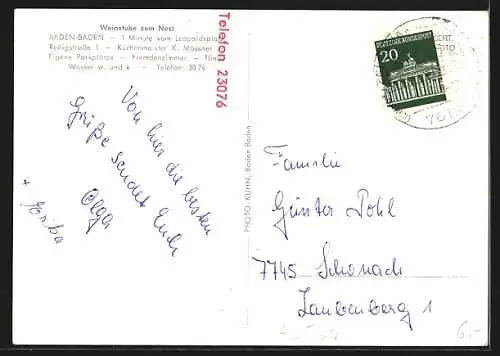 Weinstube zum Nest
BADEN-BADEN — 1 Minute vom Leopoldsplatz
Rettigstraße 1 — Küchenmeister K. Mössner
Eigene Parkplätze — Fremdenzimmer — fließ.
Wasser w. und k. — Telefon 3076
Telefon 23076
Von hier die besten
Grüße sendet Euch
Olga
+ Erika
PHOTO-KUHN, Baden-Baden
DEUTSCHE BUNDESPOST
20
Familie
Günter Pohl
7745 Schonach
Laubenberg 1
6,-